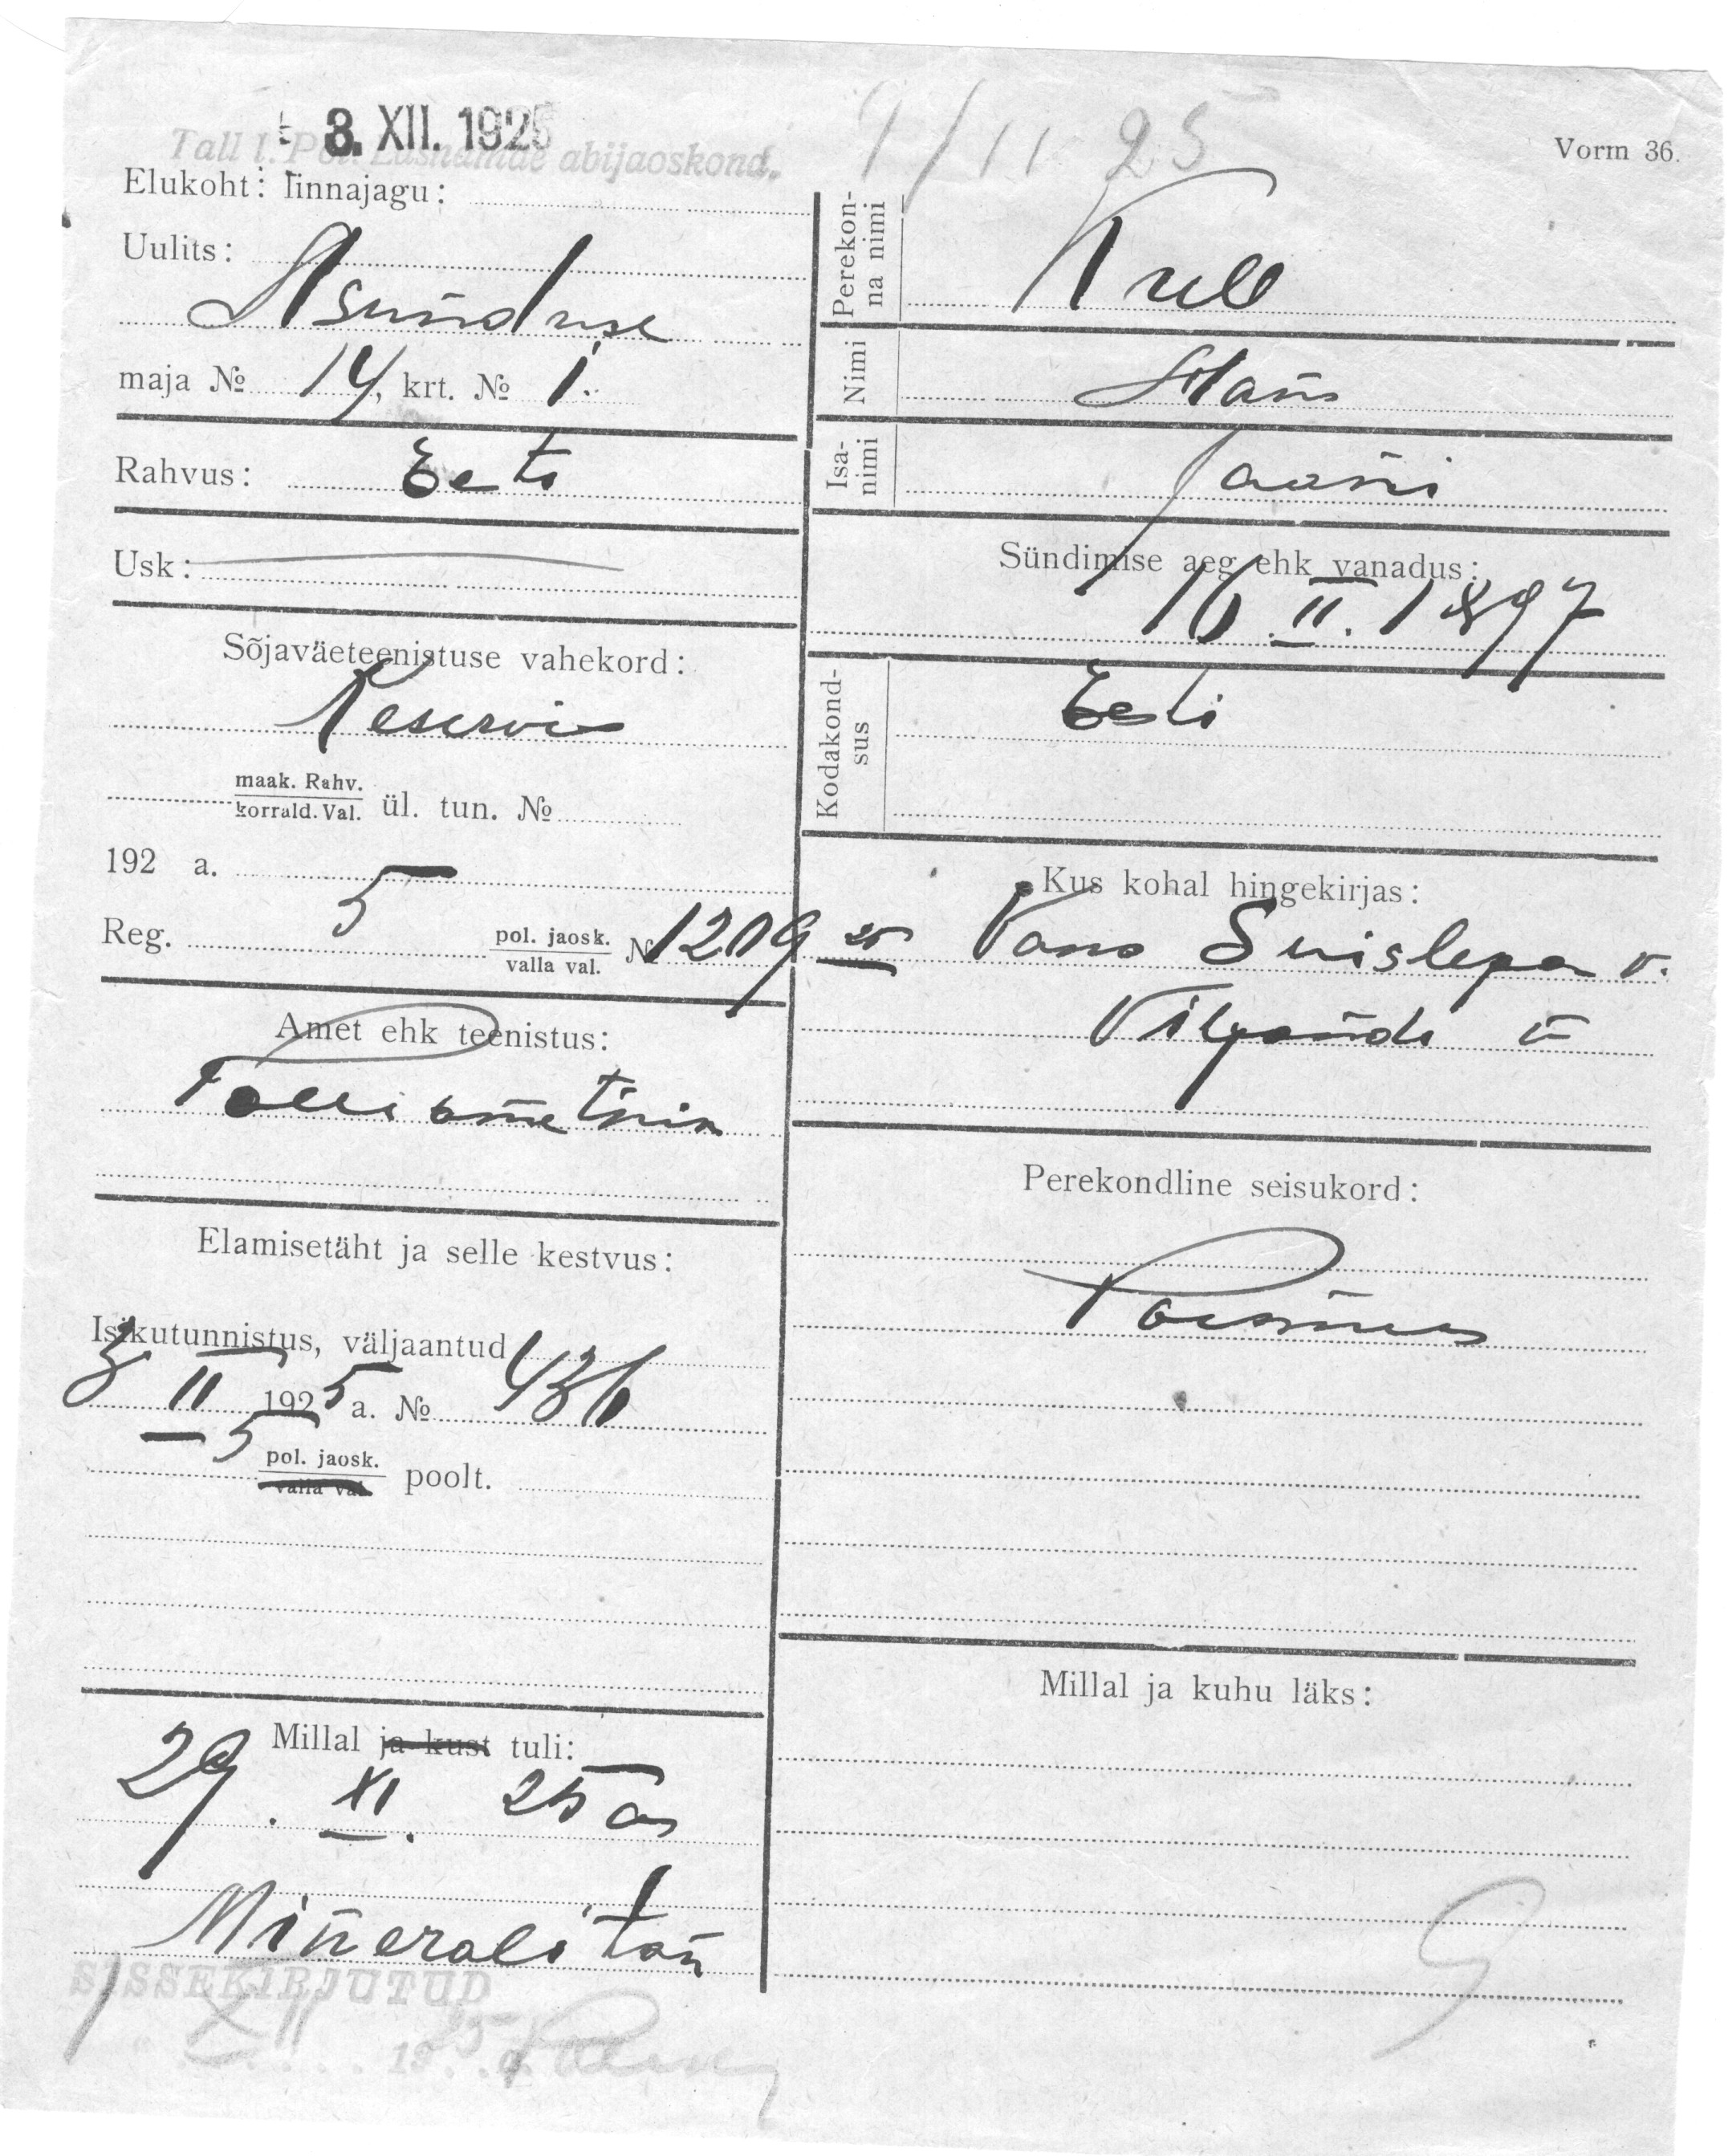 3. XII. 1925
Tall I. Pol. Lasnamäe abijaoskond.
Vorm 36.
Elukoht: linnajagu:
Uulits:
Asunduse
maja № 14, krt. № 1.
Rahvus: Eesti
Usk:
Sõjaväeteenistuse vahekord:
Reservis
maak. Rahv.
korrald. Val. ül. tun. №
192 a.
Reg. 5 pol. jaosk. № 1209 25
valla val.
Amet ehk teenistus:
Tolliametnik
Elamisetäht ja selle kestvus:
Isikutunnistus, väljaantud
3 II 1925 a. № 436
5 pol. jaosk.
valla val. poolt.
Millal ja kust tuli:
29. XI. 25 a
Minerali tän
SISSEKIRJUTUD
1 XII 1925
Perekonna nimi
Krull
Nimi Hans
Isanimi Jaani
Sündimise aeg ehk vanadus:
16. II. 1897
Kodakondsus Eesti
Kus kohal hingekirjas:
Vana Suislepa v.
Viljandi
Perekondline seisukord:
Poismees
Millal ja kuhu läks: